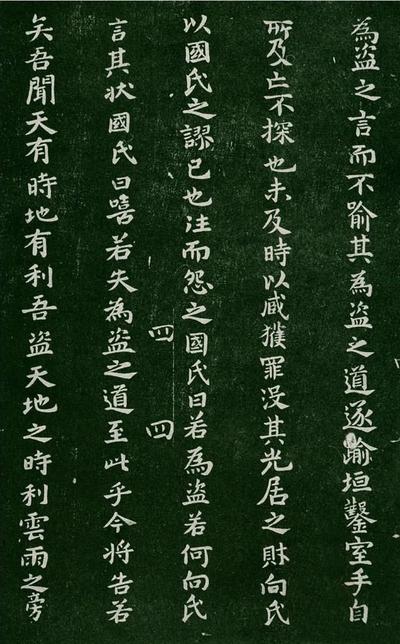 為盜之言而不喻其為盜之道遂踰垣鑿室手自
所及亡不探也未及時以臧獲罪没其光居之財向氏
以國氏之謬已也往而怨之國氏曰若為盜若何向氏
四四
言其狀國氏曰嘻若失為盜之道至此乎今將告若
矣吾聞天有時地有利吾盜天地之時利雲雨之旁